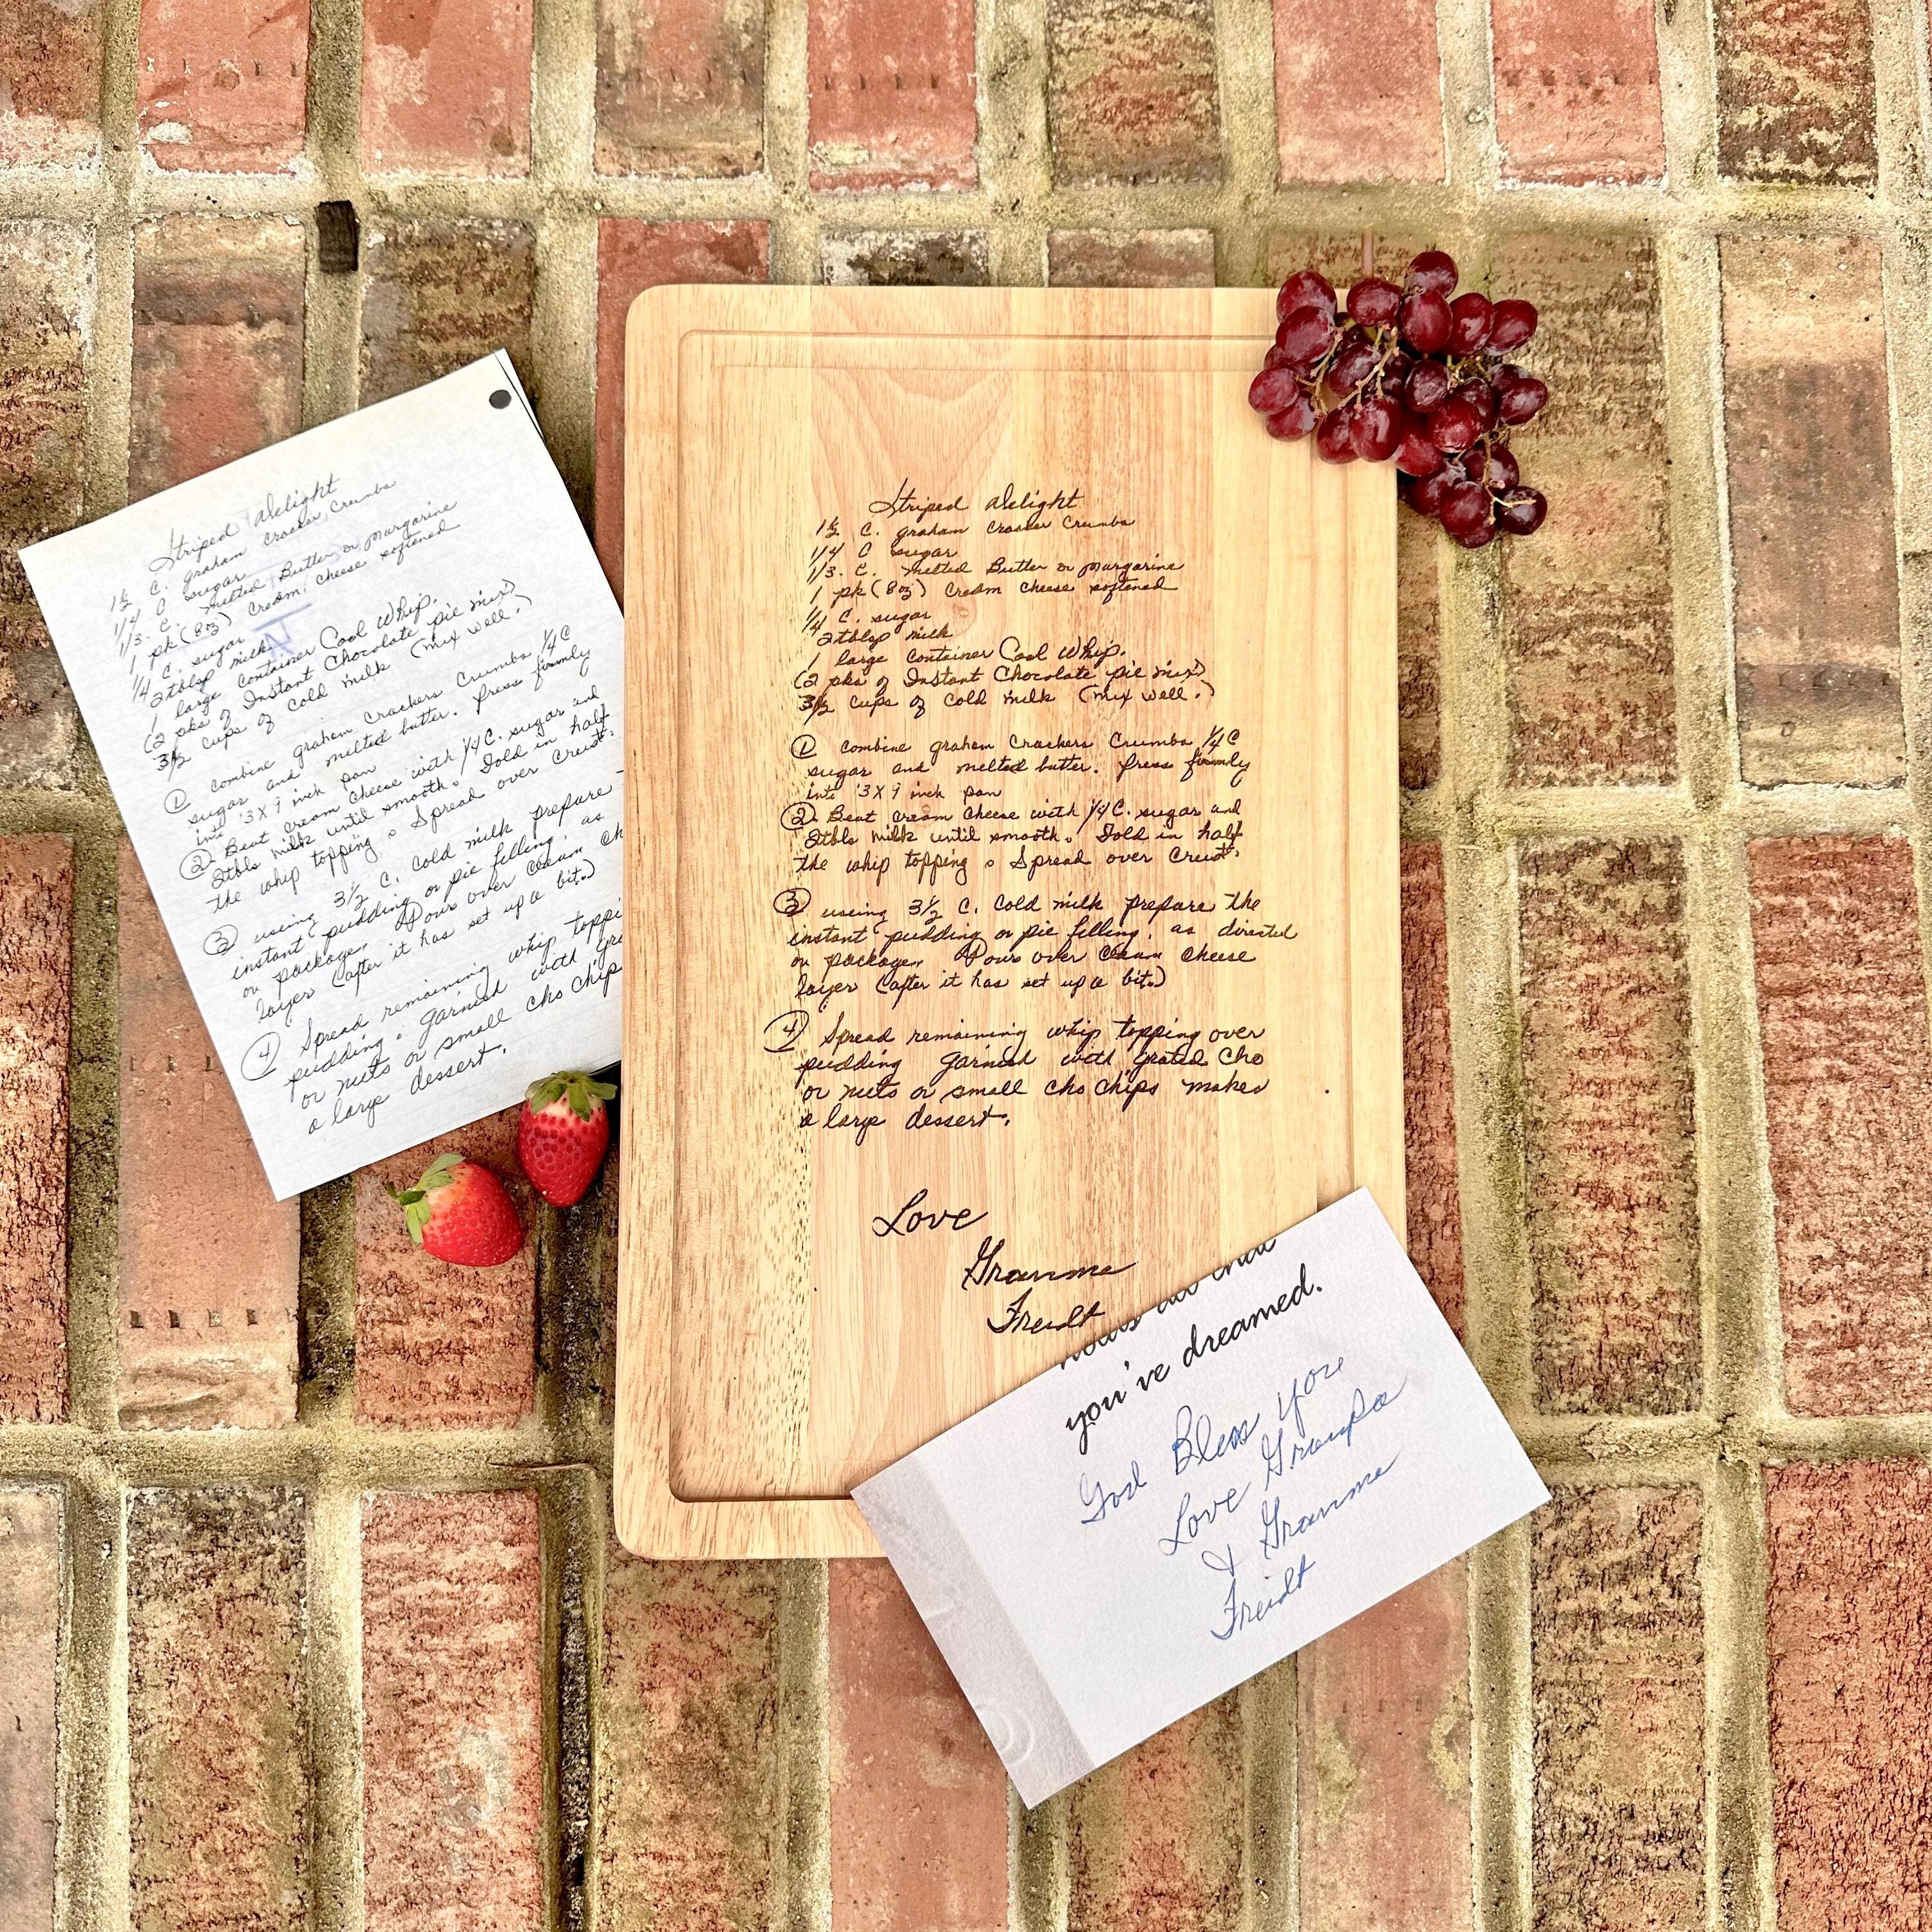 Striped Delight
1½ C. graham Cracker Crumbs
1/4 C sugar
1/3. C. melted Butter or margarine
1 pk (8oz) cream cheese softened
1/4 C. sugar
2tblsp milk
1 large container Cool Whip.
(2 pks of Instant Chocolate pie mix)
3½ cups of cold milk (mix well.)
① combine graham Crackers Crumbs 1/4 C
sugar and melted butter. press firmly
into 13X9 inch pan
② Beat cream cheese with 1/4 C. sugar and
2tbls milk until smooth. Fold in half
the whip topping. Spread over Crust.
③ using 3½ C. cold milk prepare
instant pudding or pie filling, as
on package. Pour over cream ch
layer (after it has set up a bit.)
④ Spread remaining whip toppi
pudding. garnish with gra
or nuts or small cho chips
a large dessert.
Striped Delight
1½ C. graham Cracker Crumbs
1/4 C sugar
1/3. C. melted Butter or margarine
1 pk (8oz) cream cheese softened
1/4 C. sugar
2tblsp milk
1 large container Cool Whip.
(2 pks of Instant Chocolate pie mix)
3½ cups of cold milk (mix well.)
① combine graham Crackers Crumbs 1/4 C
sugar and melted butter. press firmly
into 13X9 inch pan
② Beat cream cheese with 1/4 C. sugar and
2tbls milk until smooth. Fold in half
the whip topping. Spread over Crust.
③ using 3½ C. cold milk prepare the
instant pudding or pie filling, as directed
on package. Pour over cream cheese
layer (after it has set up a bit.)
④ Spread remaining whip topping over
pudding garnish with grated cho
or nuts or small cho chips makes
a large dessert.
Love
Gramma
Freidt
you've dreamed.
God Bless you
Love Grampa
& Gramma
Freidt